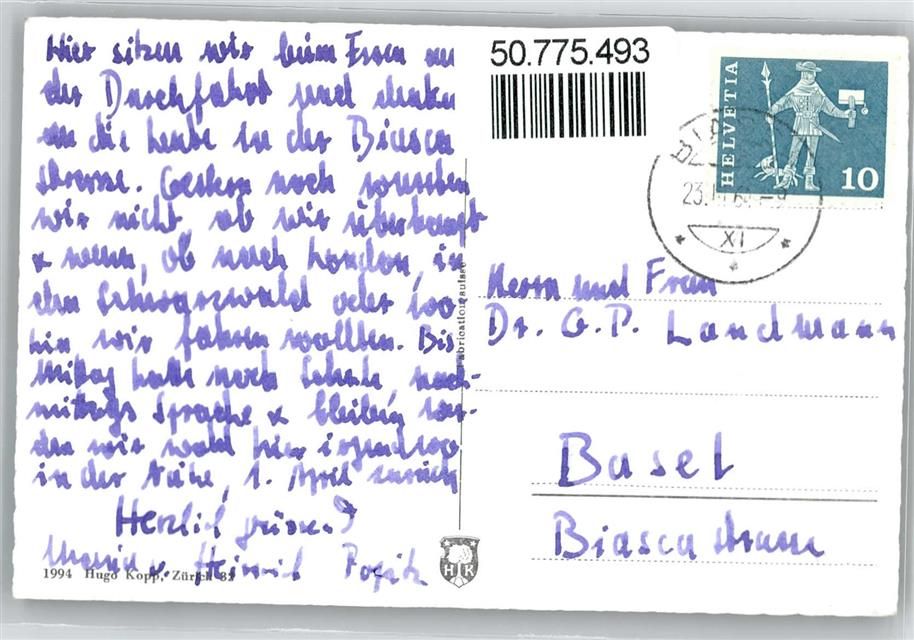 Hier sitzen wir beim Essen an
der Durchfahrt und denken
an die Leute in der Biasca
strasse. Gestern noch wussten
wir nicht, ob wir überhaupt
& wenn, ob nach London, in
den Schwarzwald oder wo
hin wir fahren wollten. Bis
Mittag hatte noch Schule, nach-
mittags Sprache & bleiben wer-
den wir wohl hier irgendwo
in der Nähe, 1. April zurück
Herzlich grüssen
Heinrich
1994 Hugo Kopp, Zürich
HK
Fabrication suisse
50.775.493
HELVETIA
10
XI
Herrn und Frau
Dr. G. P. Landmann
Basel
Biascastrasse